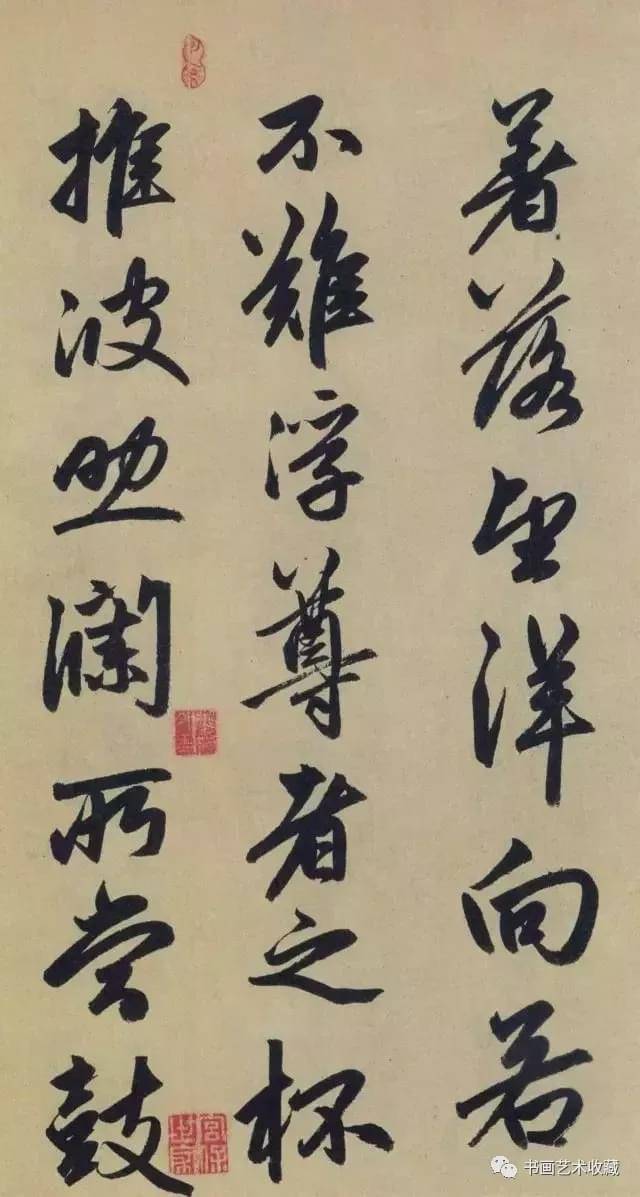 著落望洋向若
不難浮尊者之杯
推波助瀾所嘗鼓
书画艺术收藏